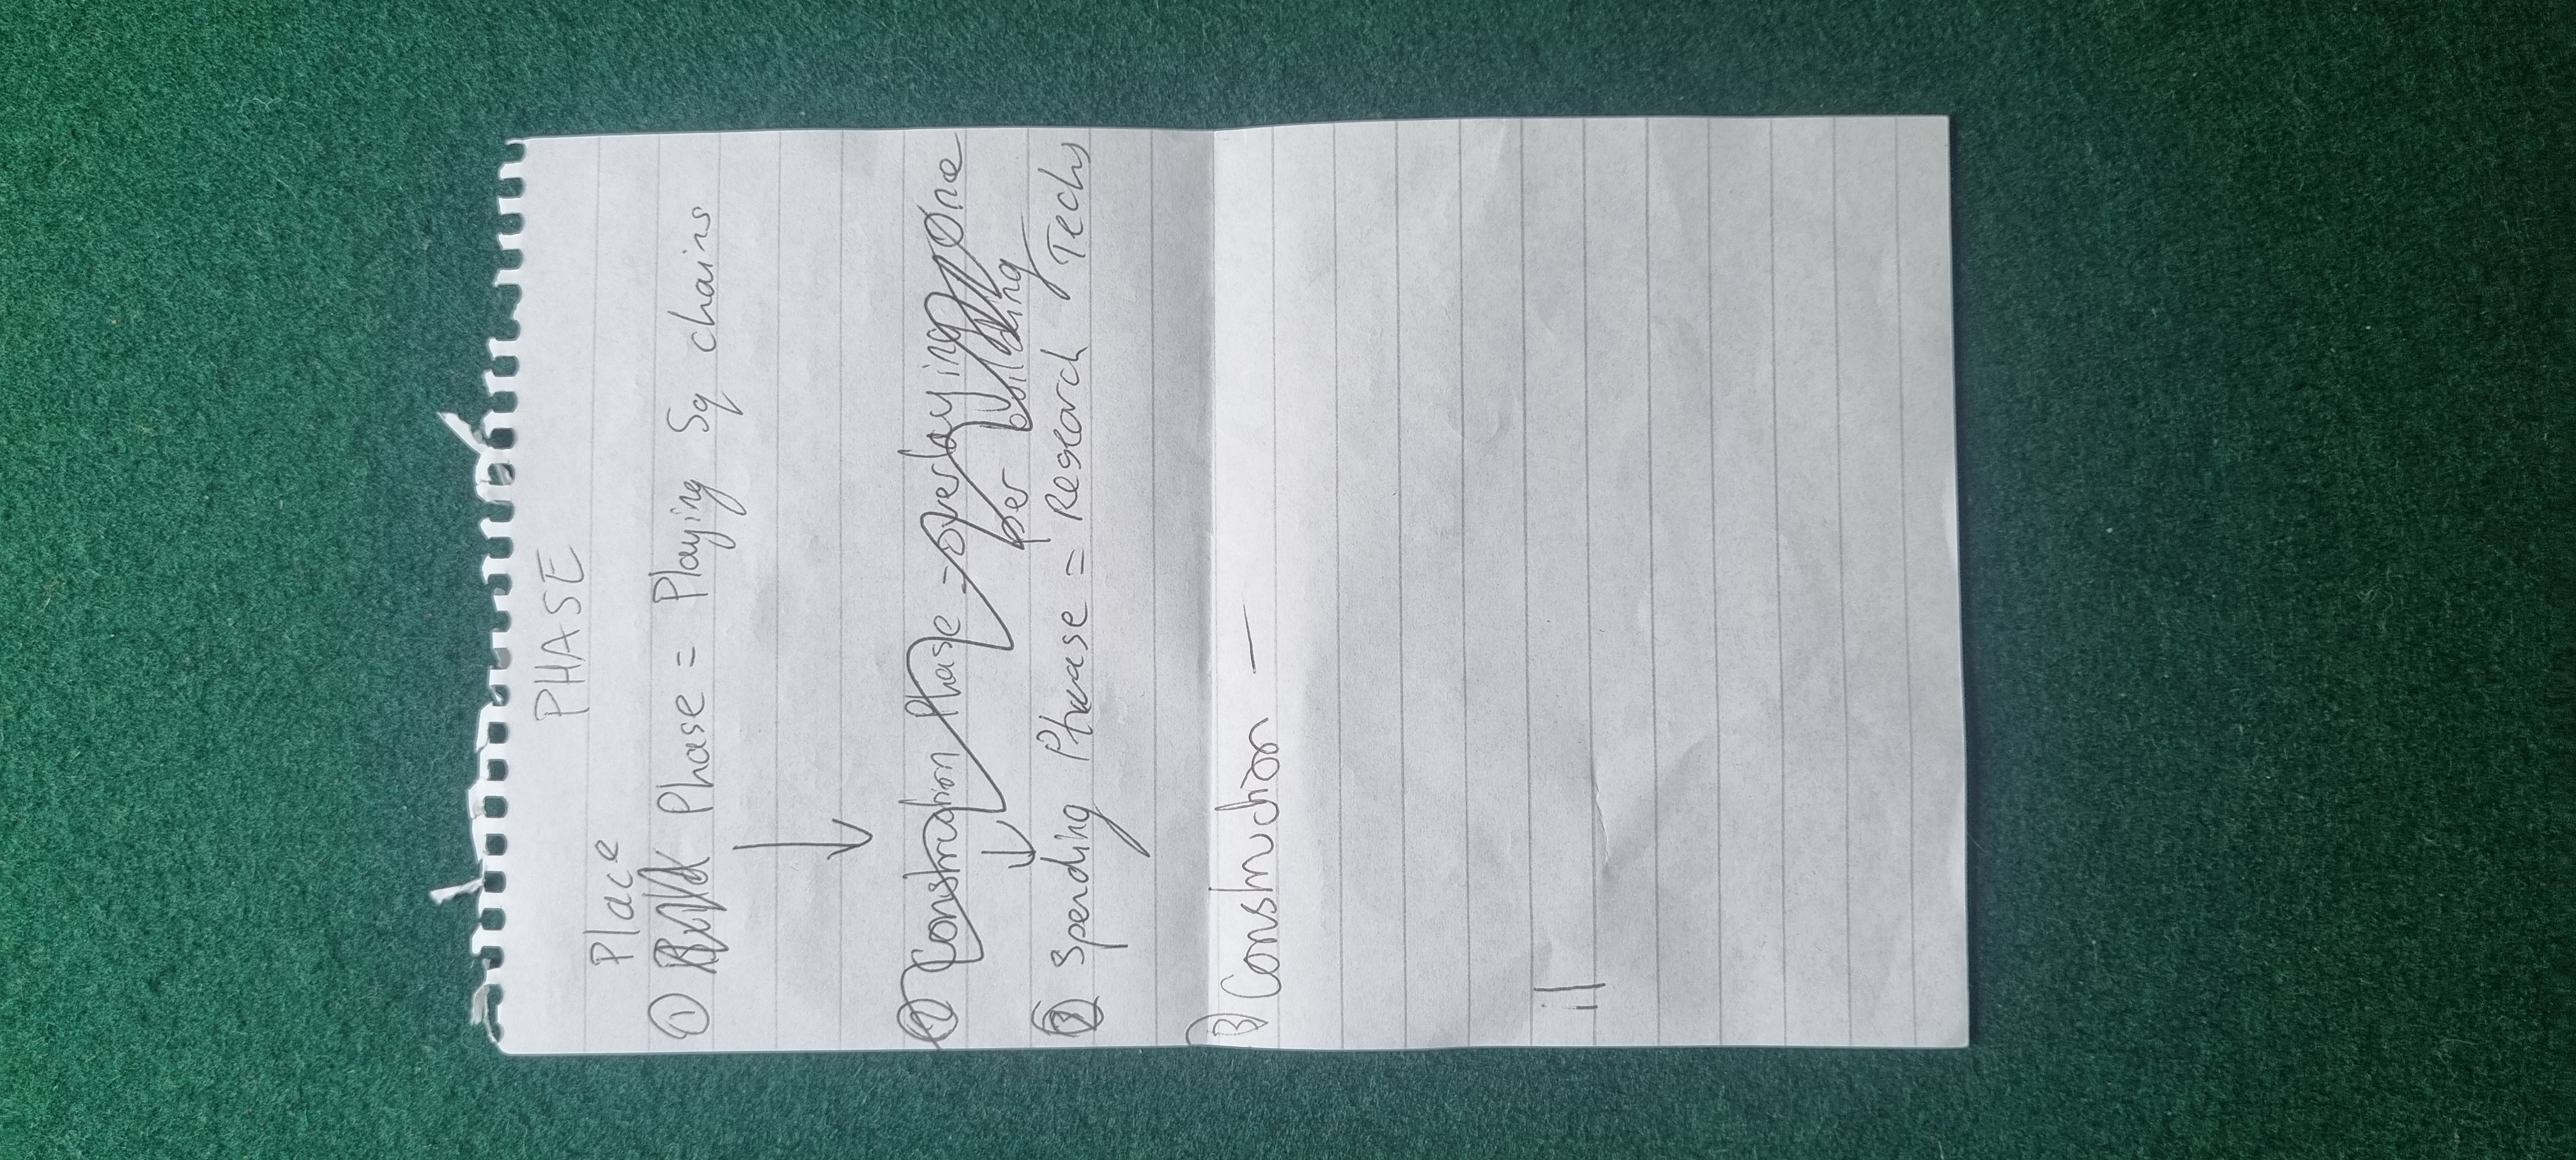 PHASE
Place
① Build Phase = Playing Sq chains
↓
② Construction Phase - overlaying one
per building
↓
② Spending Phase = Research Techs
③ Construction —